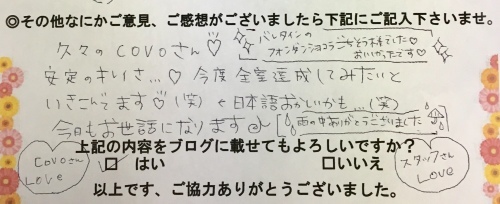 ◎その他なにかご意見、ご感想がございましたら下記にご記入下さいませ。
久々のCOVOさん♡
バレンタインの
フォンダンショコラごちそう様でした♡
おいしかったです
安定のキレイさ…♡ 今度全室達成してみたいと
いきこんでます♡(笑) ←日本語おかしいかも…(笑)
今日もお世話になります
雨の中ありがとうございました
上記の内容をブログに載せてもよろしいですか？
COVOさん
LOVE
□ はい
□いいえ
スタッフさん
LOVE
以上です、ご協力ありがとうございました。